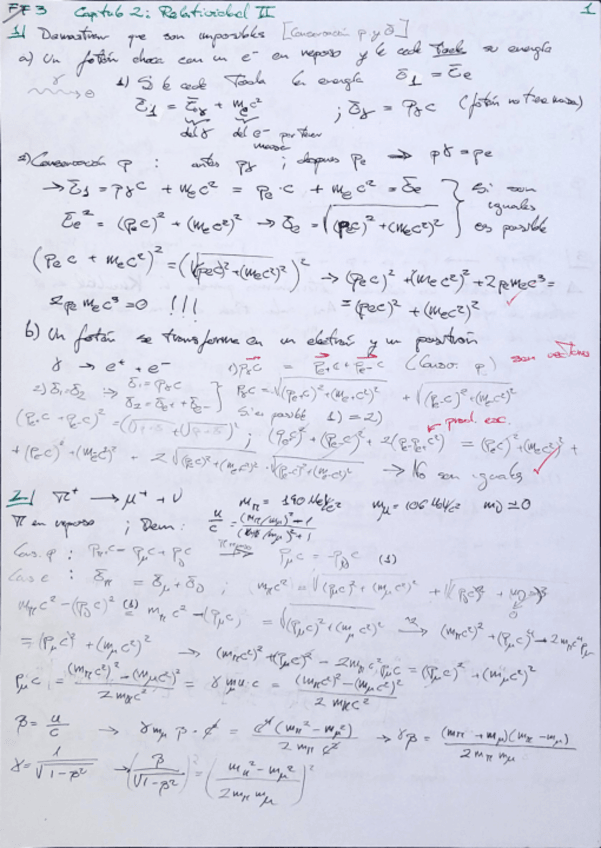 FF3 Capítulo 2: Relatividad II 1
1) Demostrar que son imposibles [Conservación p y E]
a) Un fotón choca con un e⁻ en reposo y le cede toda su energía
1) Si le cede toda la energía E₁ = Ee
γ → e
E₁ = Eγ + mec² ; Eγ = Pγc (fotón no tiene masa)
del γ del e⁻ por tener masa
2) Conservación p : antes pγ ; después pe ⟹ pγ = pe
→ E₁ = pγc + mec² = pe·c + mec² = Ee
Ee² = (pec)² + (mec²)² → E₂ = √(pec)² + (mec²)² } Si son iguales es posible
(pec + mec²)² = (√(pec)² + (mec²)²)² → (pec)² + (mec²)² + 2pemec³ =
2pemec³ = 0 !!! = (pec)² + (mec²)²
b) Un fotón se transforma en un electrón y un positrón
γ → e⁺ + e⁻ 1) pγc = pe⁺c + pe⁻c (Conser. p) son vectores
2) E₁ = E₂ ⟹ E₁ = pγc E₂ = Ee⁺ + Ee⁻ } pγc = √(pe⁺c)² + (me⁺c²)² + √(pe⁻c)² + (me⁻c²)²
Si es posible 1) = 2)
prod. esc.
→ No son iguales
2) π⁺ → μ⁺ + ν mπ = 140 MeV/c² mμ = 106 MeV/c² mν ≃ 0
π en reposo ; Dem: u/c = ((mπ/mμ)² − 1)/((mπ/mμ)² + 1)
Cons. p : pπc = pμc + pνc ⟹ pμc = −pνc (1)
Cons e : Eπ = Eμ + Eν ; mπc² = √(pμc)² + (mμc²)² + √(pνc)² + (mνc²)²
mπc² − (pνc) (1)= mπc² − (pμc) = √(pμc)² + (mμc²)² → (mπc²)² + (pμc)² − 2mπc²pμc
= (pμc)² + (mμc²)² → (mπc²)² + (pμc)² − 2mπc²pμc = (pμc)² + (mμc²)²
pμc = ((mπc²)² − (mμc²)²)/(2mπc²) = γmμu·c = ((mπc²)² − (mμc²)²)/(2mπc²)
β = u/c → γmμβ·c² = c⁴(mπ² − mμ²)/(2mπc²) → γβ = (mπ + mμ)(mπ − mμ)/(2mπmμ)
γ = 1/√(1−β²) → (β/√(1−β²))² = ((mπ² − mμ²)/(2mπmμ))²